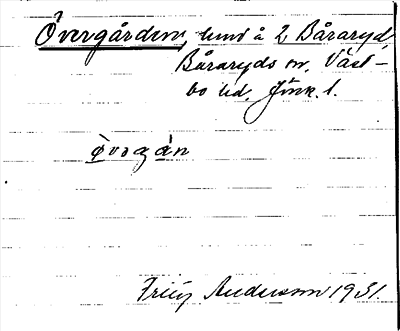 Övergården, hmd å 2 Båraryd,
Båraryds sn. Väst-
bo hd. Jönk. l.
ö̀vərgán
Frits Anderson 1931.